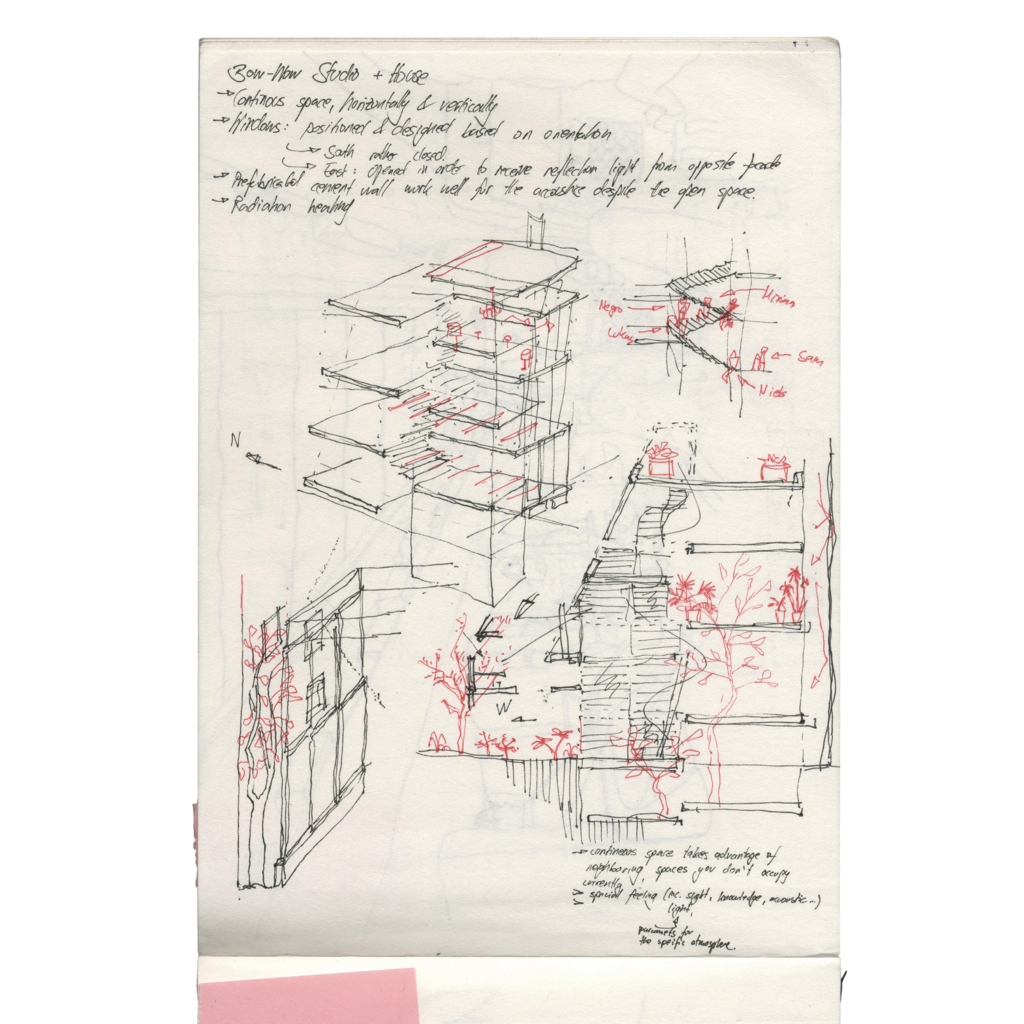 Bow-Wow Studio + House
→ Continous space, horizontally & vertically
→ Windows: positioned & designed based on orientation
→ South rather closed.
→ East: opened in order to receive reflection light from opposite facade
→ Prefabricated cement wall work well for the acoustic despite the open space.
→ Radiation heating
Negro
Lukas
Sam
Niels
N
N
→ continous space takes advantage of
neighbooring spaces you don't occupy
currently
special feeling (inc. sight, knowledge, acoustic...)
light,
paramets for
the specific atmosphere.